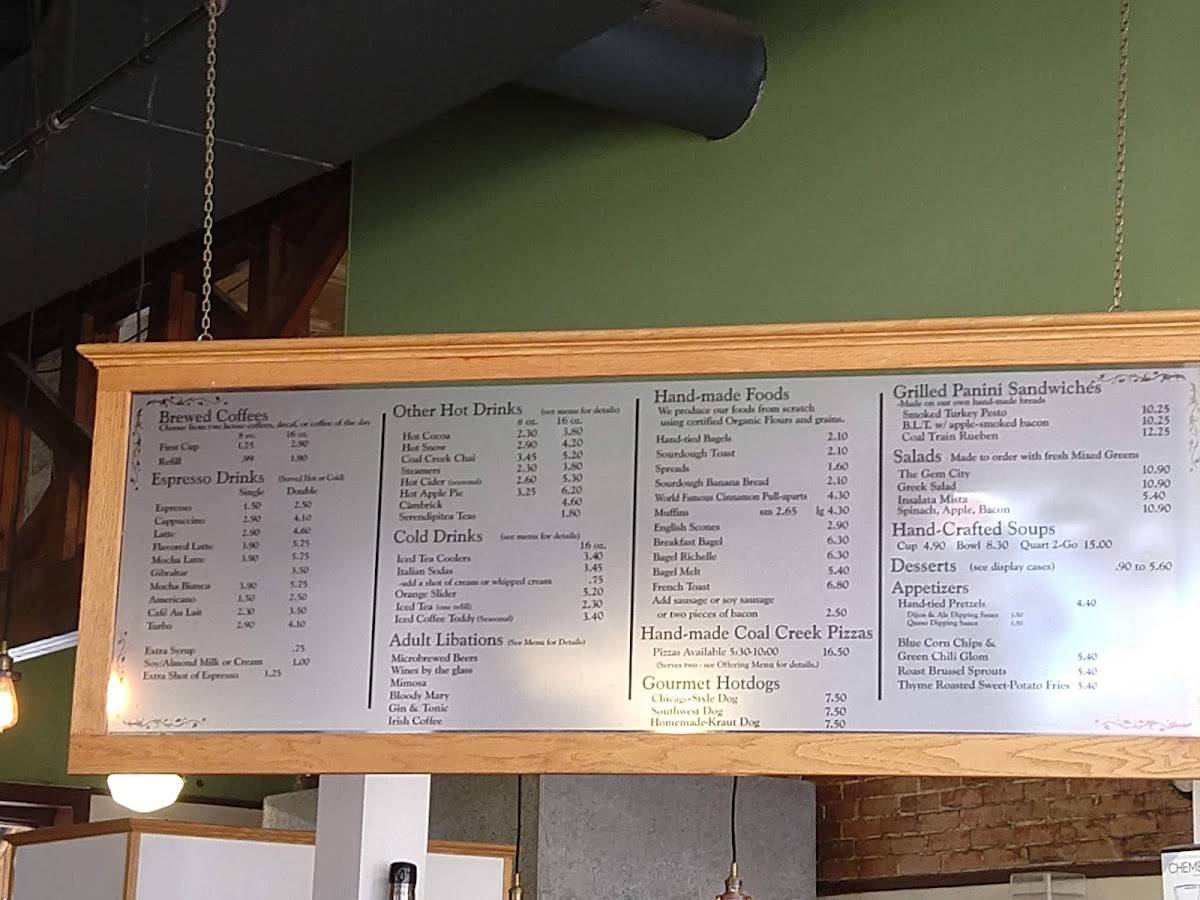 Brewed Coffees
Choose from two house coffees, decaf, or coffee of the day
8 oz. 16 oz.
First Cup 1.25 2.90
Refill .99 1.90
Espresso Drinks (Served Hot or Cold)
Single Double
Espresso 1.50 2.50
Cappuccino 2.90 4.10
Latte 2.90 4.60
Flavored Latte 3.90 5.25
Mocha Latte 3.90 5.25
Gibraltar 3.50
Mocha Bianca 3.90 5.75
Americano 1.50 2.50
Café Au Lait 2.30 3.50
Turbo 2.90 4.10
Extra Syrup .75
Soy/Almond Milk or Cream 1.00
Extra Shot of Espresso 1.25
Other Hot Drinks (see menu for details)
8 oz. 16 oz.
Hot Cocoa 2.30 3.80
Hot Snow 2.90 4.20
Coal Creek Chai 3.45 5.20
Steamers 2.30 3.80
Hot Cider (seasonal) 2.60 5.30
Hot Apple Pie 3.25 6.20
Cambrick 4.60
Serendipitea Teas 1.80
Cold Drinks (see menu for details)
16 oz.
Iced Tea Coolers 3.40
Italian Sodas 3.45
-add a shot of cream or whipped cream .75
Orange Slider 5.20
Iced Tea (one refill) 2.30
Iced Coffee Toddy (Seasonal) 3.40
Adult Libations (See Menu for Details)
Microbrewed Beers
Wines by the glass
Mimosa
Bloody Mary
Gin & Tonic
Irish Coffee
Hand-made Foods
We produce our foods from scratch
using certified Organic Flours and grains.
Hand-tied Bagels 2.10
Sourdough Toast 2.10
Spreads 1.60
Sourdough Banana Bread 2.10
World Famous Cinnamon Pull-aparts 4.30
Muffins sm 2.65 lg 4.30
English Scones 2.90
Breakfast Bagel 6.30
Bagel Richelle 6.30
Bagel Melt 5.40
French Toast 6.80
Add sausage or soy sausage
or two pieces of bacon 2.50
Hand-made Coal Creek Pizzas
Pizzas Available 5:30-10:00 16.50
(Serves two - see Offering Menu for details.)
Gourmet Hotdogs
Chicago-Style Dog 7.50
Southwest Dog 7.50
Homemade-Kraut Dog 7.50
Grilled Panini Sandwiches
-Made on our own hand-made breads
Smoked Turkey Pesto 10.25
B.L.T. w/ apple-smoked bacon 10.25
Coal Train Rueben 12.25
Salads Made to order with fresh Mixed Greens
The Gem City 10.90
Greek Salad 10.90
Insalata Mista 5.40
Spinach, Apple, Bacon 10.90
Hand-Crafted Soups
Cup 4.90 Bowl 8.30 Quart 2-Go 15.00
Desserts (see display cases) .90 to 5.60
Appetizers
Hand-tied Pretzels 4.40
Dijon & Ale Dipping Sauce
Queso Dipping Sauce
Blue Corn Chips &
Green Chili Glom 5.40
Roast Brussel Sprouts 5.40
Thyme Roasted Sweet-Potato Fries 5.40